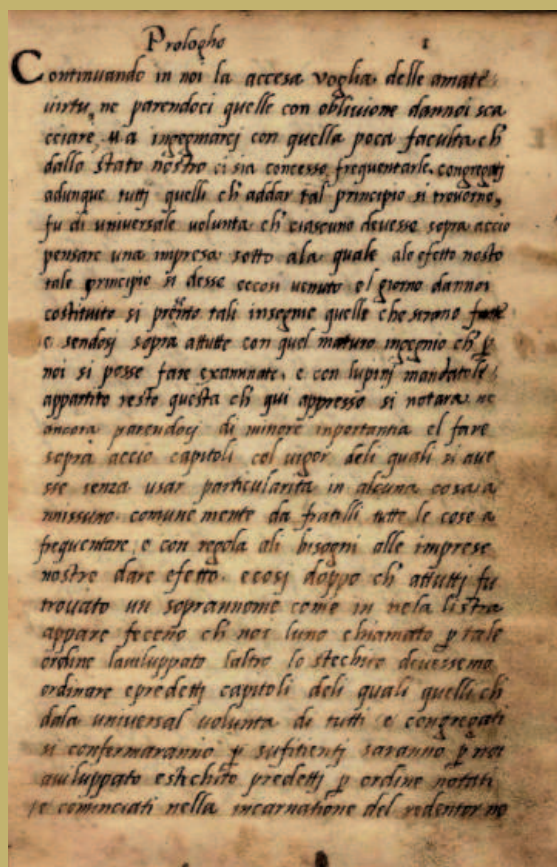 Prologho 1
Continuando in noi la accesa voglia delle amate
virtu, ne parendoci quelle con oblivione dannoi sca
cciare, ma ingegnarci con quella poca faculta ch
dallo stato nostro ci sia concesso frequentarle. congregati
adunque tutti quelli ch addar tal principio si trovorno,
fu di universale volunta ch ciascuno devesse sopra accio
pensare una impresa sotto ala quale alo efetto nostro
tale principio si desse eccosi venuto el giorno dannoi
costituito si presento tali insegne quelle che furono fatte
e sendosi sopra attutte con quel maturo ingegnio ch p
noi si posse fare examinate, e con lupini mandatole
appartito resto questa ch qui appresso si notara ne
ancora parendoci di minore inportantia el fare
sopra accio capitoli col vigor deli quali si ave
sse senza usar particularita in alcuna cosa a
nnissuno comune mente da fratelli tutte le cose a
frequentare e con regola ali bisogni alle imprese
nostre dare efetto. ecosi doppo ch attutti fu
trovato un soprannome come in nela listra
appare feceno ch noi luno chiamato p tale
ordine laviluppato laltro lo stechito devessemo
ordinare epredetti capitoli deli quali quelli ch
dala universal volunta di tutti e congregati
si confermaranno p sufitienti saranno p noi
aviluppato estechito predetti p ordine notati
e cominciati nella incarnatione del redentor no